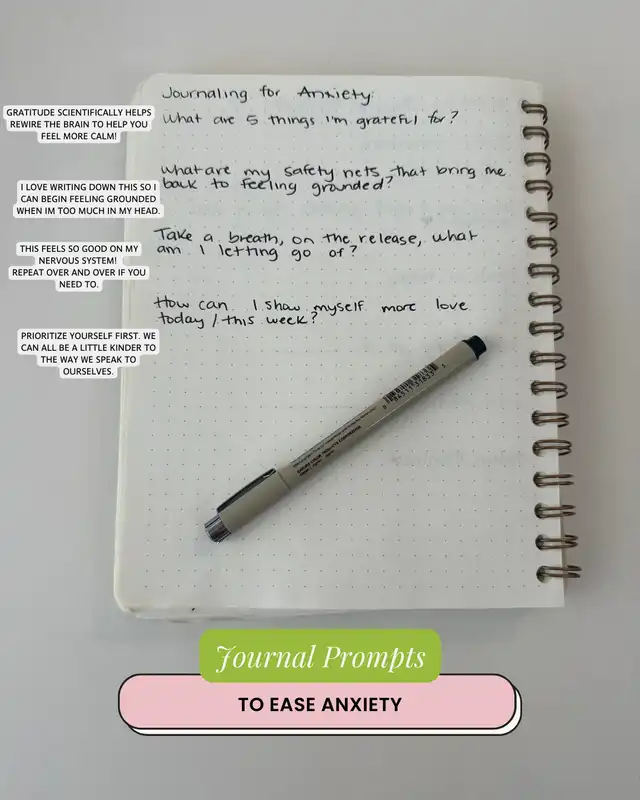 Journaling for Anxiety:
What are 5 things I'm grateful for?
GRATITUDE SCIENTIFICALLY HELPS
REWIRE THE BRAIN TO HELP YOU
FEEL MORE CALM!
What are my safety nets that bring me
back to feeling grounded?
I LOVE WRITING DOWN THIS SO I
CAN BEGIN FEELING GROUNDED
WHEN IM TOO MUCH IN MY HEAD.
Take a breath, on the release, what
am I letting go of?
THIS FEELS SO GOOD ON MY
NERVOUS SYSTEM!
REPEAT OVER AND OVER IF YOU
NEED TO.
How can I show myself more love
today / this week?
PRIORITIZE YOURSELF FIRST. WE
CAN ALL BE A LITTLE KINDER TO
THE WAY WE SPEAK TO
OURSELVES.
Journal Prompts
TO EASE ANXIETY